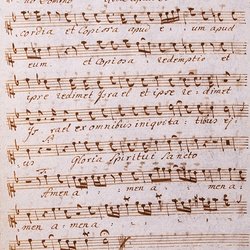 cordia et Copiosa apud e : um apud
eum . et Copiosa . redemptio et
ipse redimet Israel et ipse redimet
Is : rael ex omnibus iniquita : tibus e :
: us Gloria Spiritui Sancto
Amen a . : men a :
men a : men a . men